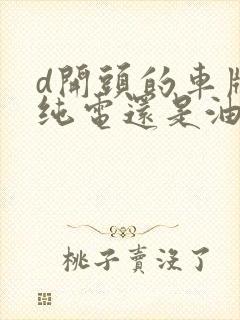 d開頭的車牌
純電還是油
桃子賣沒了